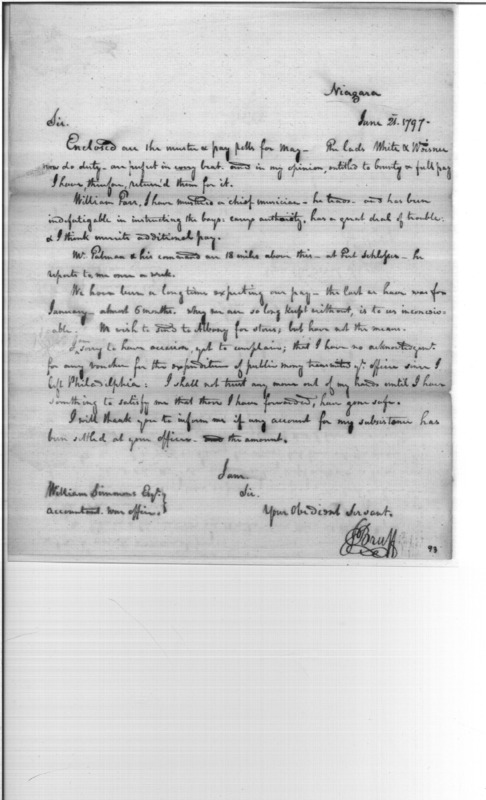 Niagara
June 21. 1797-
Sir.
Enclosed are the muster & pay rolls for May- The lads White & Weisner
now do duty- are perfect in every beat. and in my opinion, entitled to bounty & full pay
I have, therefore, return'd them for it.
William Parr, I have mustered a chief musician- he teach- and has been
indefatigable in instructing the boys: carrys authority, has a great deal of trouble:
& I think merits additional pay.
Mr. Palmer & his command are 18 miles above this- at Post Schlosser- he
reports to me once a week.
We have been a long time expecting our pay- the last we have was for
January- almost 6 months. why we are so long kept without, is to us inconceiv-
able. We wish to send to Albany for stores, but have not the means.
I sorry to have occasion, yet to complain; that I have no acknowledgment
for any voucher for the expenditure of public money transmitted yr. office since I
left Philadelphia: I shall not trust any more out of my hands until I have
something to satisfy me that those I have forwarded, have gone safe.
I will thank you to inform me if my account for my subsistence has
been settled at your office- and the amount.
I am
Sir.
William Simmons Esqr.
accountant. war office.
Your Obedient Servant.
JBruff
93